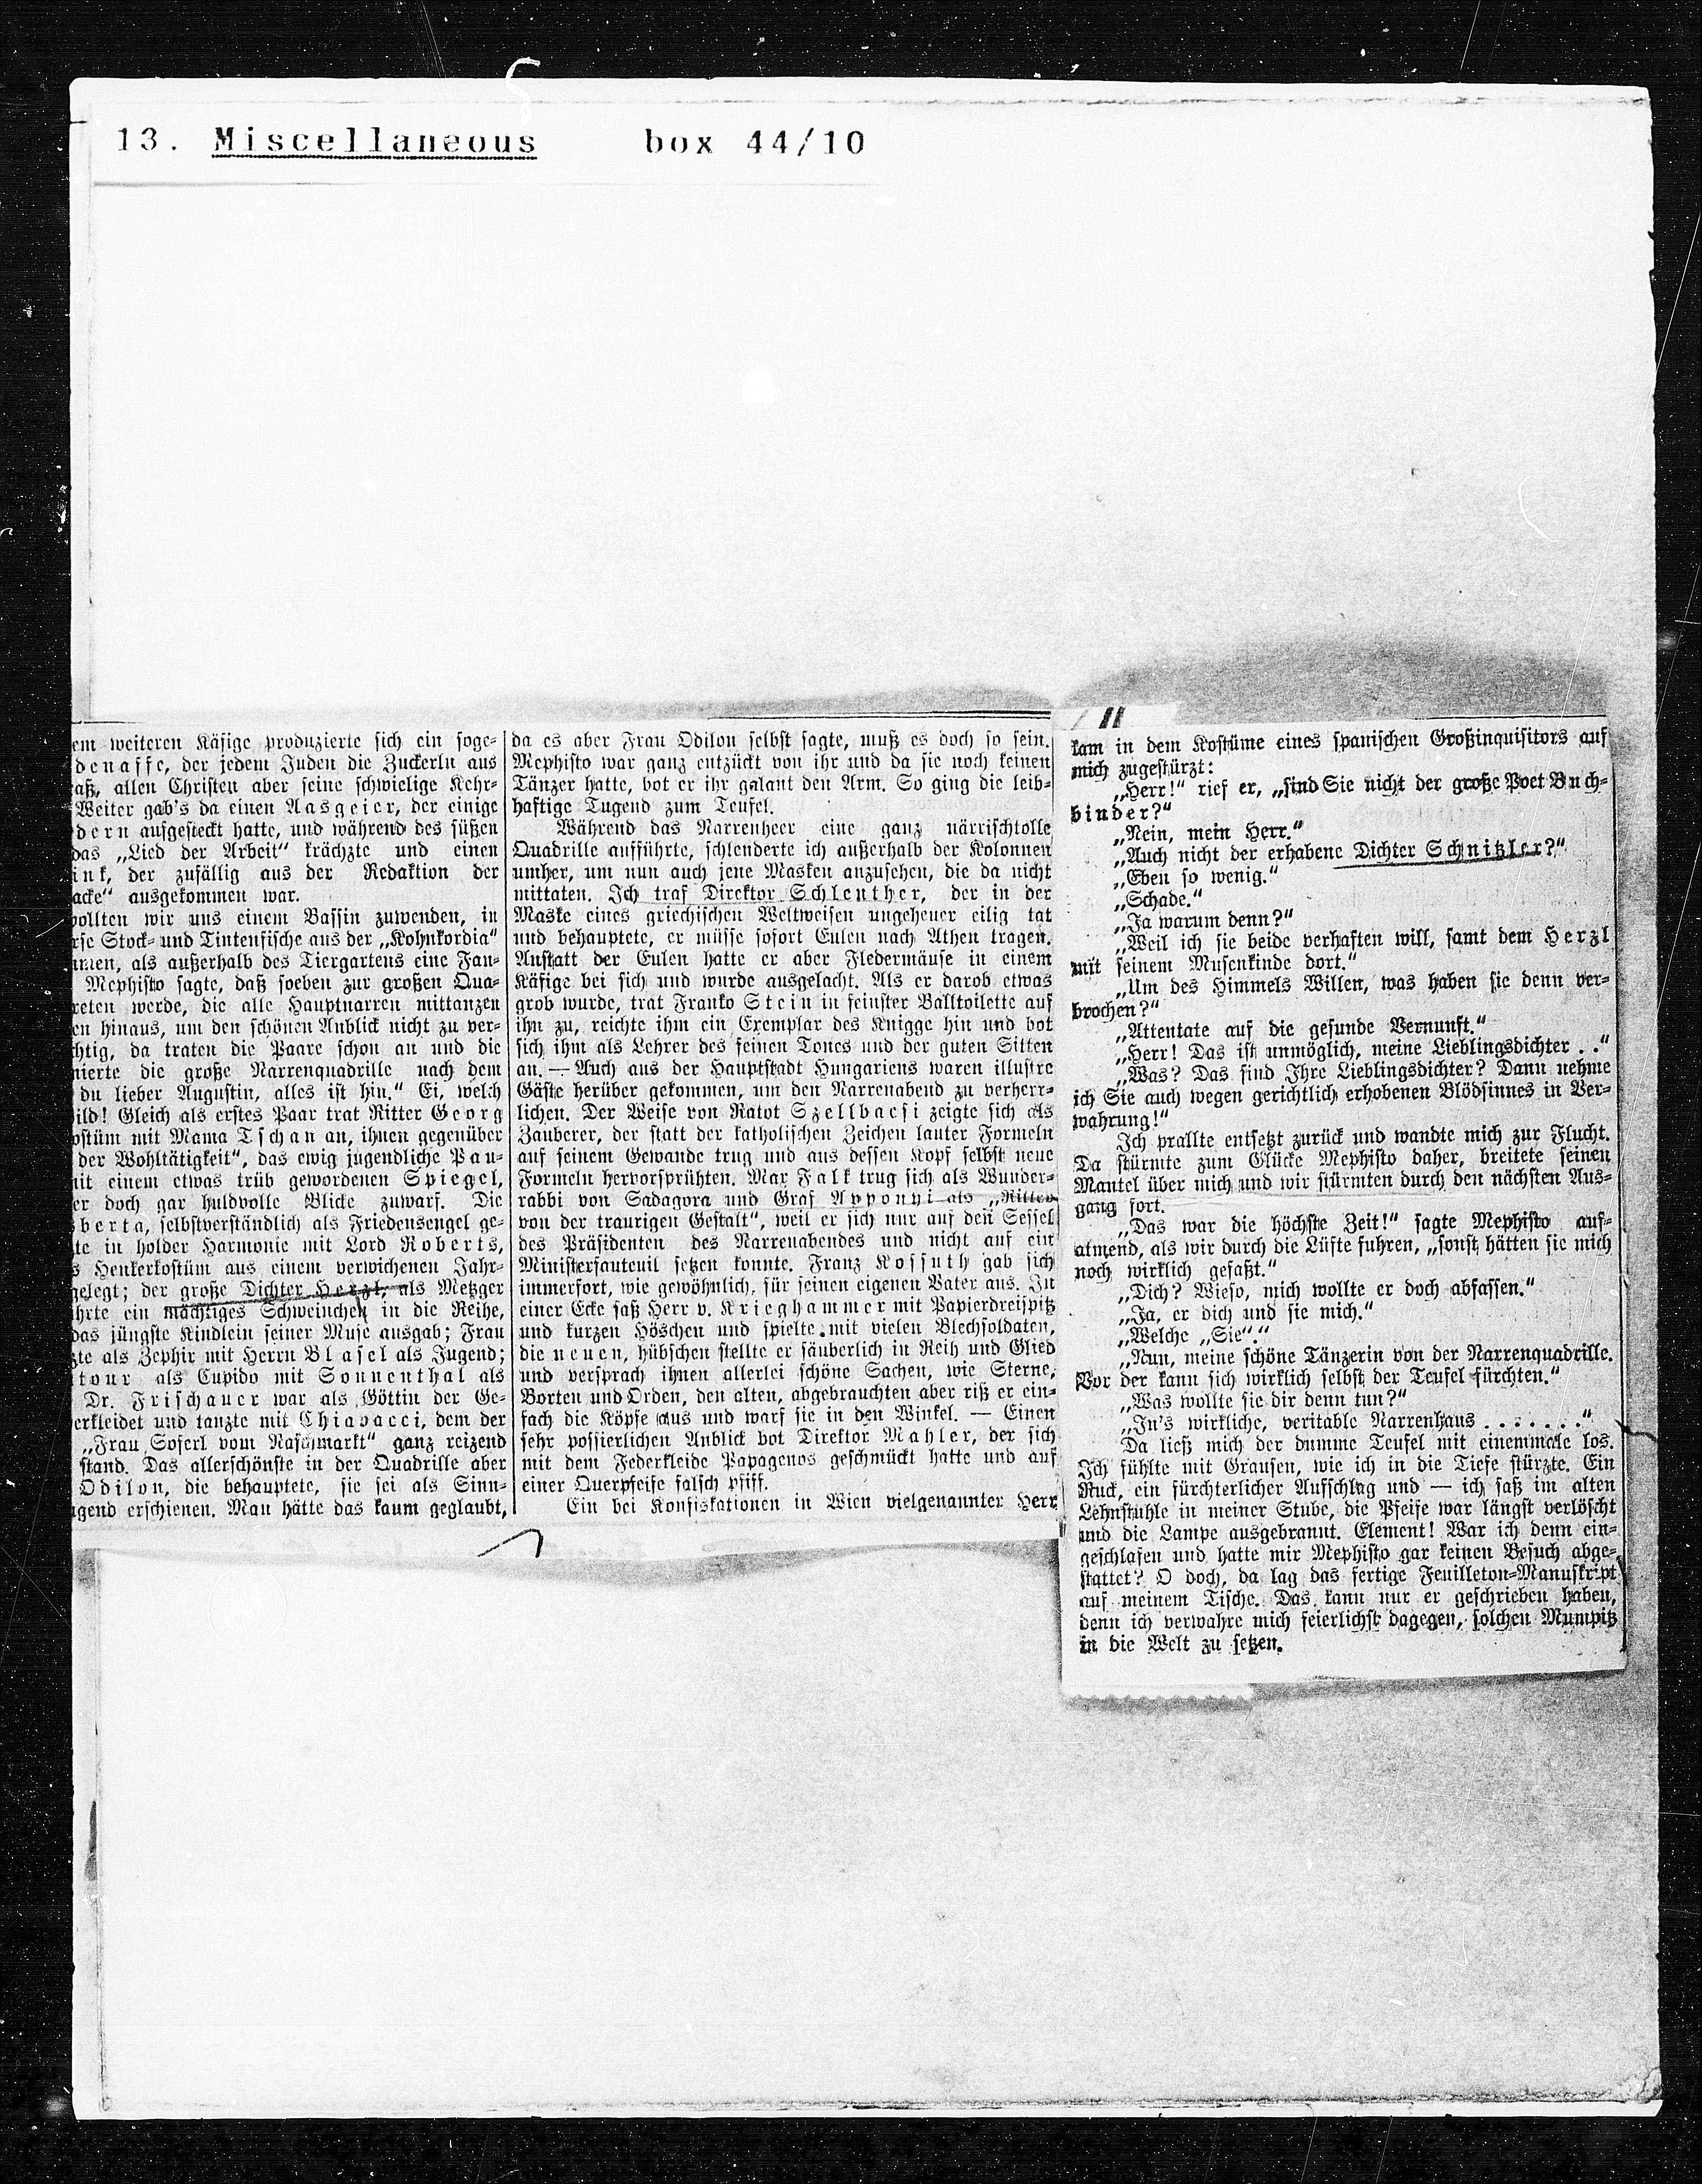 13. Miscellaneous box 44/10
em weiteren Käfige produzierte sich ein soge-
denaffe, der jedem Juden die Zuckerln aus
aß, allen Christen aber seine schwielige Kehr-
Weiter gab's da einen Aasgeier, der einige
dern aufgesteckt hatte, und während des süßen
das „Lied der Arbeit“ krächzte und einen
ink, der zufällig aus der Redaktion der
acke“ ausgekommen war.
wollten wir uns einem Bassin zuwenden, in
rse Stock- und Tintenfische aus der „Kohnkordia“
men, als außerhalb des Tiergartens eine Fan-
Mephisto sagte, daß soeben zur großen Qua-
reten werde, die alle Hauptnarren mittanzen
en hinaus, um den schönen Anblick nicht zu ver-
chtig, da traten die Paare schon an und die
nierte die große Narrenquadrille nach dem
du lieber Augustin, alles ist hin.“ Ei, welch
ild! Gleich als erstes Paar trat Ritter Georg
ostüm mit Mama Tschan an, ihnen gegenüber
der Wohltätigkeit“, das ewig jugendliche Pau-
nit einem etwas trüb gewordenen Spiegel,
er doch gar huldvolle Blicke zuwarf. Die
berta, selbstverständlich als Friedensengel ge-
te in holder Harmonie mit Lord Roberts,
s Henkerkostüm aus einem verwichenen Jahr-
gelegt; der große Dichter Herzl, als Metzger
hrte ein mächtiges Schweinchen in die Reihe,
das jüngste Kindlein seiner Muse ausgab; Frau
zte als Zephir mit Herrn Blasel als Jugend;
tour als Cupido mit Sonnenthal als
Dr. Frischauer war als Göttin der Ge-
erkleidet und tanzte mit Chiavacci, dem der
„Frau Soferl vom Naschmarkt“ ganz reizend
stand. Das allerschönste in der Quadrille aber
Odilon, die behauptete, sie sei als Sinn-
ugend erschienen. Man hätte das kaum geglaubt,
da es aber Frau Odilon selbst sagte, muß es doch so sein.
Mephisto war ganz entzückt von ihr und da sie noch keinen
Tänzer hatte, bot er ihr galant den Arm. So ging die leib-
haftige Tugend zum Teufel.
Während das Narrenheer eine ganz närrischtolle
Quadrille aufführte, schlenderte ich außerhalb der Kolonnen
umher, um nun auch jene Masken anzusehen, die da nicht
mittaten. Ich traf Direktor Schlenther, der in der
Maske eines griechischen Weltweisen ungeheuer eilig tat
und behauptete, er müsse sofort Eulen nach Athen tragen.
Anstatt der Eulen hatte er aber Fledermäuse in einem
Käfige bei sich und wurde ausgelacht. Als er darob etwas
grob wurde, trat Franko Stein in feinster Balltoilette auf
ihn zu, reichte ihm ein Exemplar des Knigge hin und bot
sich ihm als Lehrer des feinen Tones und der guten Sitten
an. — Auch aus der Hauptstadt Hungariens waren illustre
Gäste herüber gekommen, um den Narrenabend zu verherr-
lichen. Der Weise von Ratot Szellbacsi zeigte sich als
Zauberer, der statt der katholischen Zeichen lauter Formeln
auf seinem Gewande trug und aus dessen Kopf selbst neue
Formeln hervorsprühten. Max Falk trug sich als Wunder-
rabbi von Sadagora und Graf Apponyi als „Ritter
von der traurigen Gestalt“, weil er sich nur auf den Sessel
des Präsidenten des Narrenabendes und nicht auf ein
Ministerfauteuil setzen konnte. Franz Kossuth gab sich
immerfort, wie gewöhnlich, für seinen eigenen Vater aus. In
einer Ecke saß Herr v. Krieghammer mit Papierdreispitz
und kurzen Höschen und spielte mit vielen Blechsoldaten,
die neuen, hübschen stellte er säuberlich in Reih und Glied
und versprach ihnen allerlei schöne Sachen, wie Sterne,
Borten und Orden, den alten, abgebrauchten aber riß er ein-
fach die Köpfe aus und warf sie in den Winkel. — Einen
sehr possierlichen Anblick bot Direktor Mahler, der sich
mit dem Federkleide Papagenos geschmückt hatte und auf
einer Querpfeife falsch pfiff.
Ein bei Konfiskationen in Wien vielgenannter Herr
kam in dem Kostüme eines spanischen Großinquisitors auf
mich zugestürzt:
„Herr!“ rief er, „sind Sie nicht der große Poet Buch-
binder?“
„Nein, mein Herr.“
„Auch nicht der erhabene Dichter Schnitzler?“
„Eben so wenig.“
„Schade.“
„Ja warum denn?“
„Weil ich sie beide verhaften will, samt dem Herzl
mit seinem Musenkinde dort.“
„Um des Himmels Willen, was haben sie denn ver-
brochen?“
„Attentate auf die gesunde Vernunft.“
„Herr! Das ist unmöglich, meine Lieblingsdichter . .“
„Was? Das sind Ihre Lieblingsdichter? Dann nehme
ich Sie auch wegen gerichtlich erhobenen Blödsinnes in Ver-
wahrung!“
Ich prallte entsetzt zurück und wandte mich zur Flucht.
Da stürmte zum Glücke Mephisto daher, breitete seinen
Mantel über mich und wir stürmten durch den nächsten Aus-
gang fort.
„Das war die höchste Zeit!“ sagte Mephisto auf-
atmend, als wir durch die Lüfte fuhren, „sonst hätten sie mich
noch wirklich gefaßt.“
„Dich? Wieso, mich wollte er doch abfassen.“
„Ja, er dich und sie mich.“
„Welche „Sie“.“
„Nun, meine schöne Tänzerin von der Narrenquadrille.
Vor der kann sich wirklich selbst der Teufel fürchten.“
„Was wollte sie dir denn tun?“
„In's wirkliche, veritable Narrenhaus . . . . . . .“
Da ließ mich der dumme Teufel mit einemmale los.
Ich fühlte mit Grausen, wie ich in die Tiefe stürzte. Ein
Ruck, ein fürchterlicher Aufschlag und — ich saß im alten
Lehnstuhle in meiner Stube, die Pfeife war längst verlöscht
und die Lampe ausgebrannt. Element! War ich denn ein-
geschlafen und hatte mir Mephisto gar keinen Besuch abge-
stattet? O doch, da lag das fertige Feuilleton-Manuskript
auf meinem Tische. Das kann nur er geschrieben haben,
denn ich verwahre mich feierlichst dagegen, solchen Mumpitz
in die Welt zu setzen.